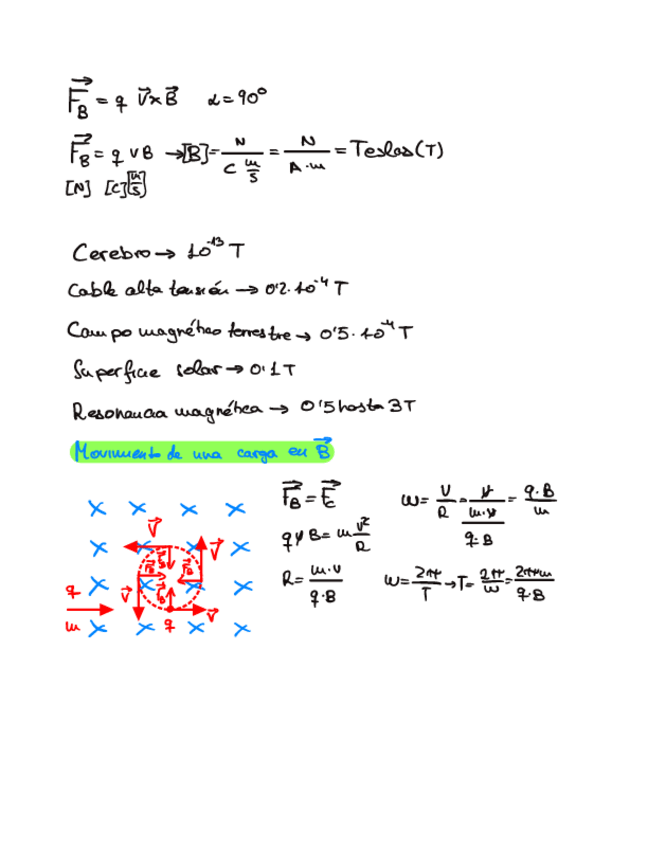 F⃗_B = q v⃗ x B⃗   α = 90º
F⃗_B = q v B → [B] = N / (C m/s) = N / (A·m) = Teslas (T)
[N] [C] [m/s]
Cerebro → 10^-13 T
Cable alta tensión → 0'2·10^-4 T
Campo magnético terrestre → 0'5·10^-4 T
Superficie solar → 0'1 T
Resonancia magnética → 0'5 hasta 3T
Movimiento de una carga en B⃗
F⃗_B = F⃗_c
q v B = m v²/R
R = m·v / q·B
ω = v/R = v / (m·v / q·B) = q·B / m
ω = 2π/T → T = 2π/ω = 2πm / q·B
v⃗
v⃗
F⃗_B
F⃗_B
F⃗_B
F⃗_B
q
v⃗
v⃗
m
q